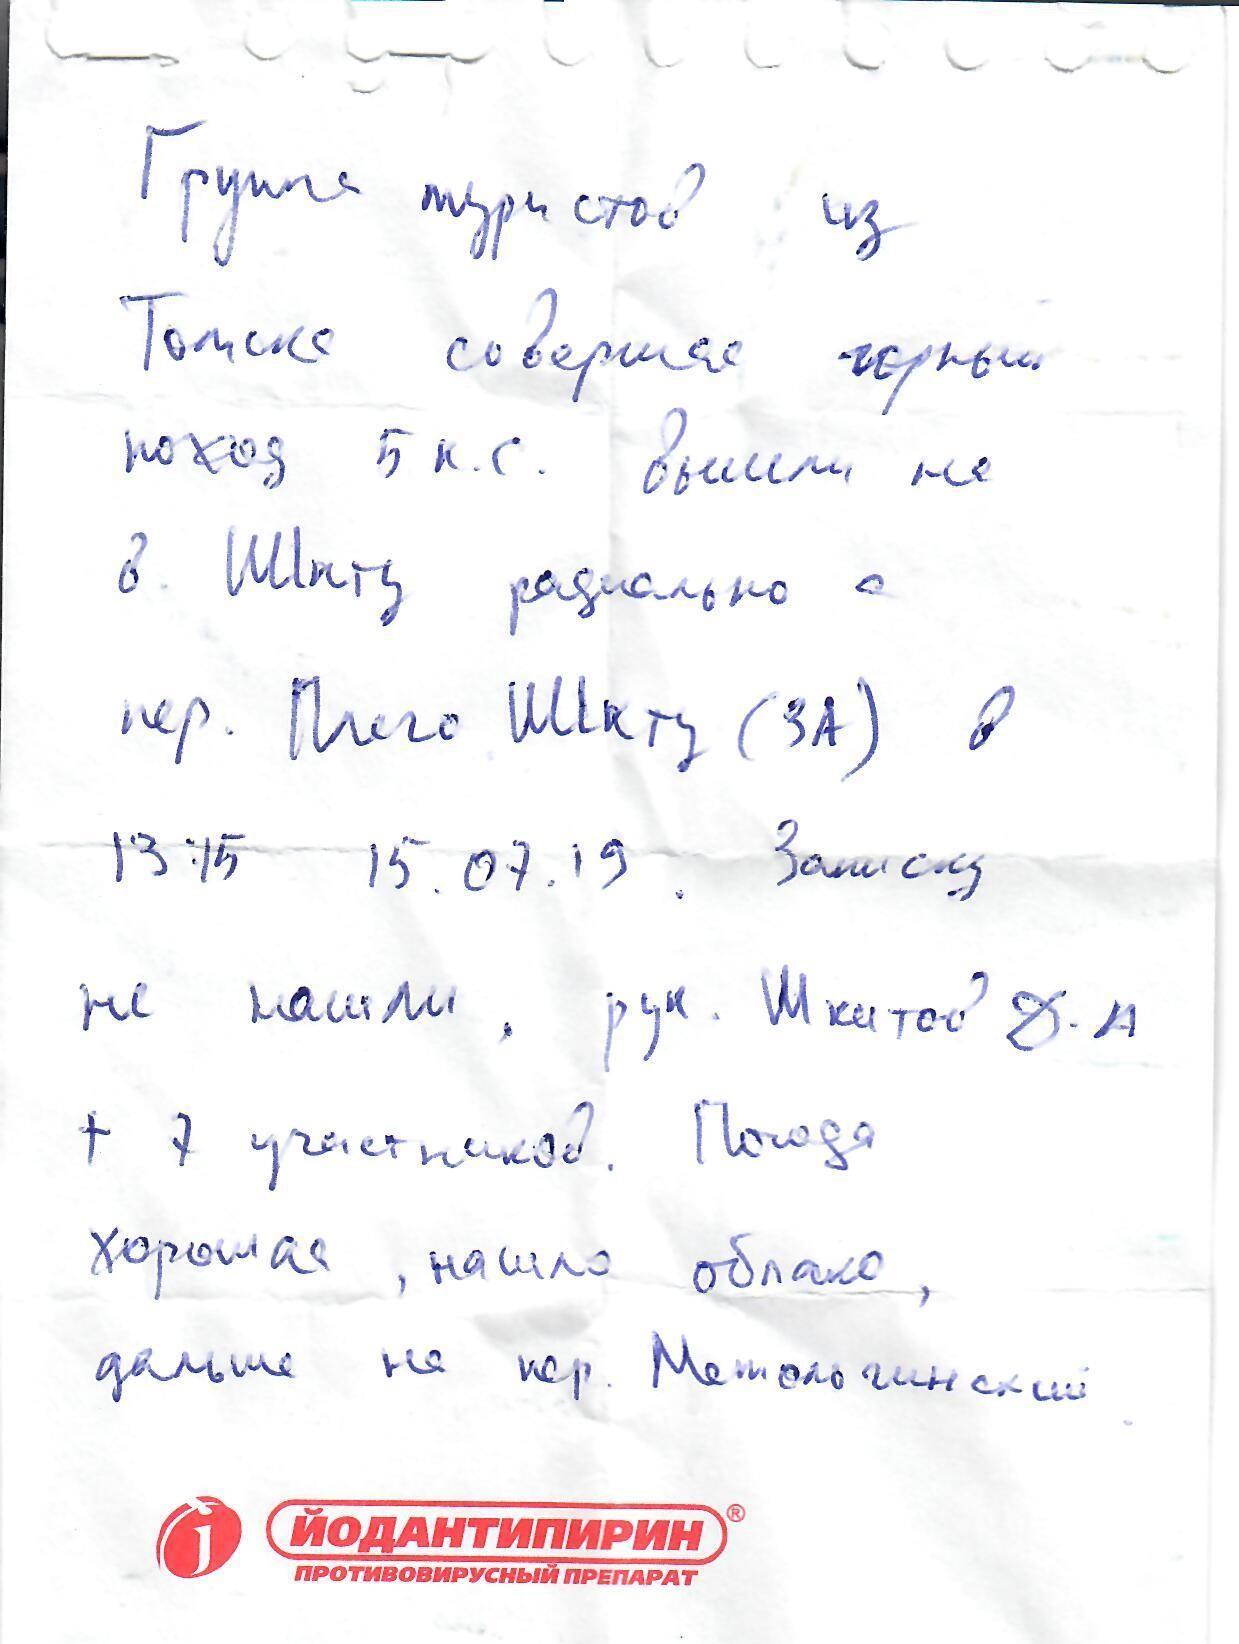 Группа туристов из
Томска совершая горный
поход 5 к.с. вышли на
в. Шкту радиально с
пер. Плечо Шкту (3А) в
13:15 15.07.19. Записку
не нашли, рук. Шкитов Д.А
+ 7 участников. Погода
хорошая, нашло облако,
дальше на пер.
ЙОДАНТИПИРИН®
ПРОТИВОВИРУСНЫЙ ПРЕПАРАТ